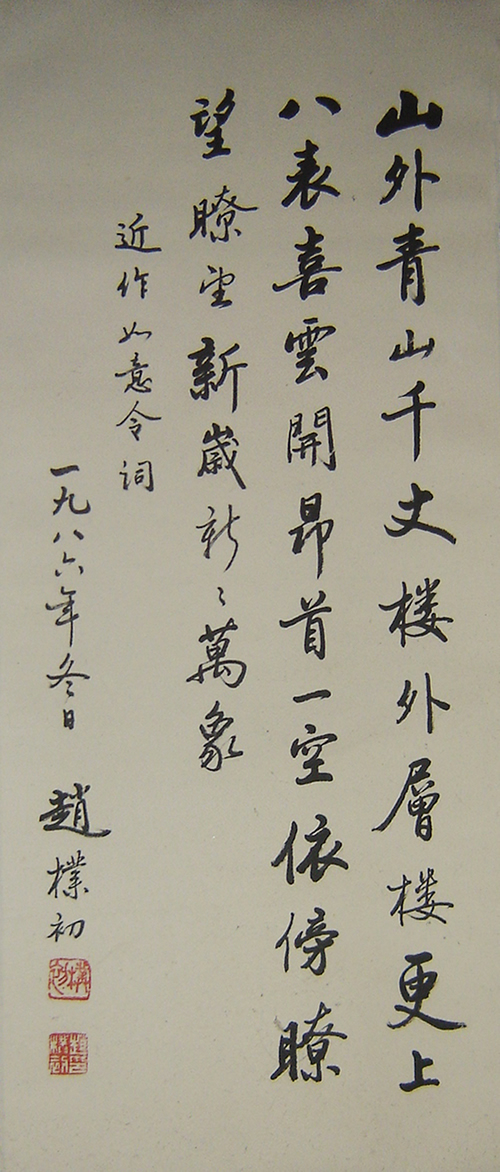 山外青山千丈楼外層楼更上
八表喜雲開昂首一空依傍瞭
望瞭望新歲新〻萬象
近作如意令詞
一九八六年冬日
趙樸初